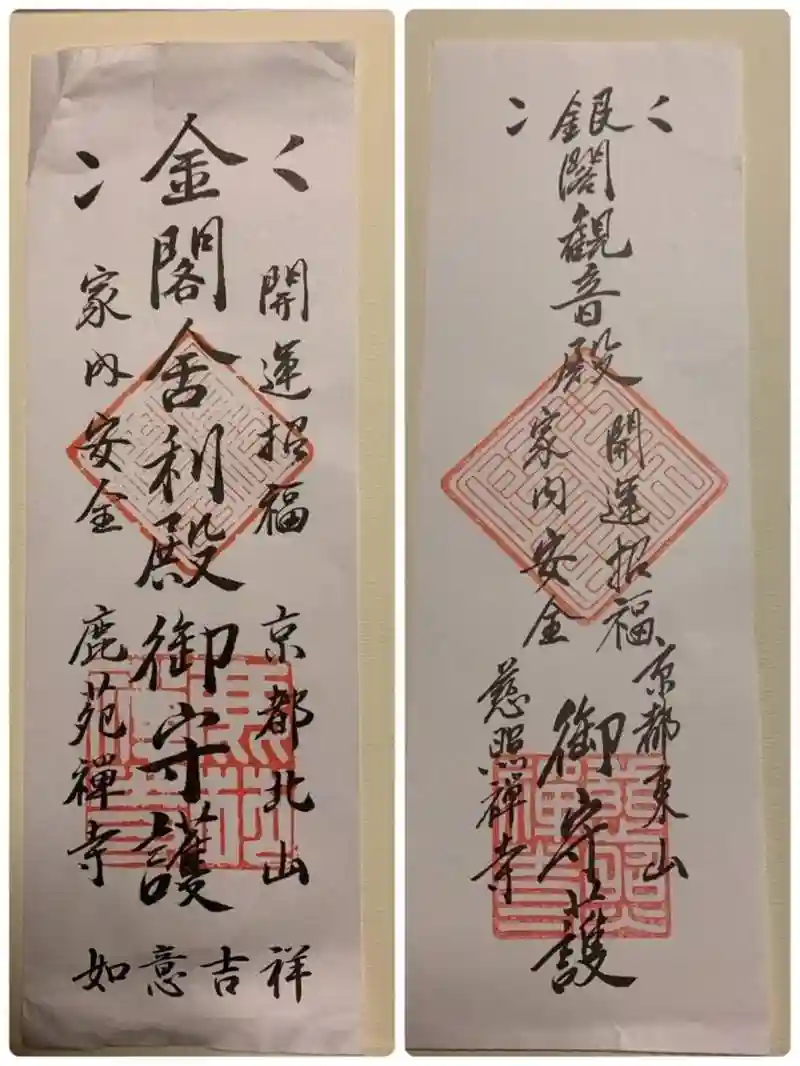 開運招福
京都北山
金閣舎利殿御守護
家内安全
鹿苑禅寺
如意吉祥
銀閣観音殿
開運招福
家内安全
京都東山
御守護
慈照禅寺